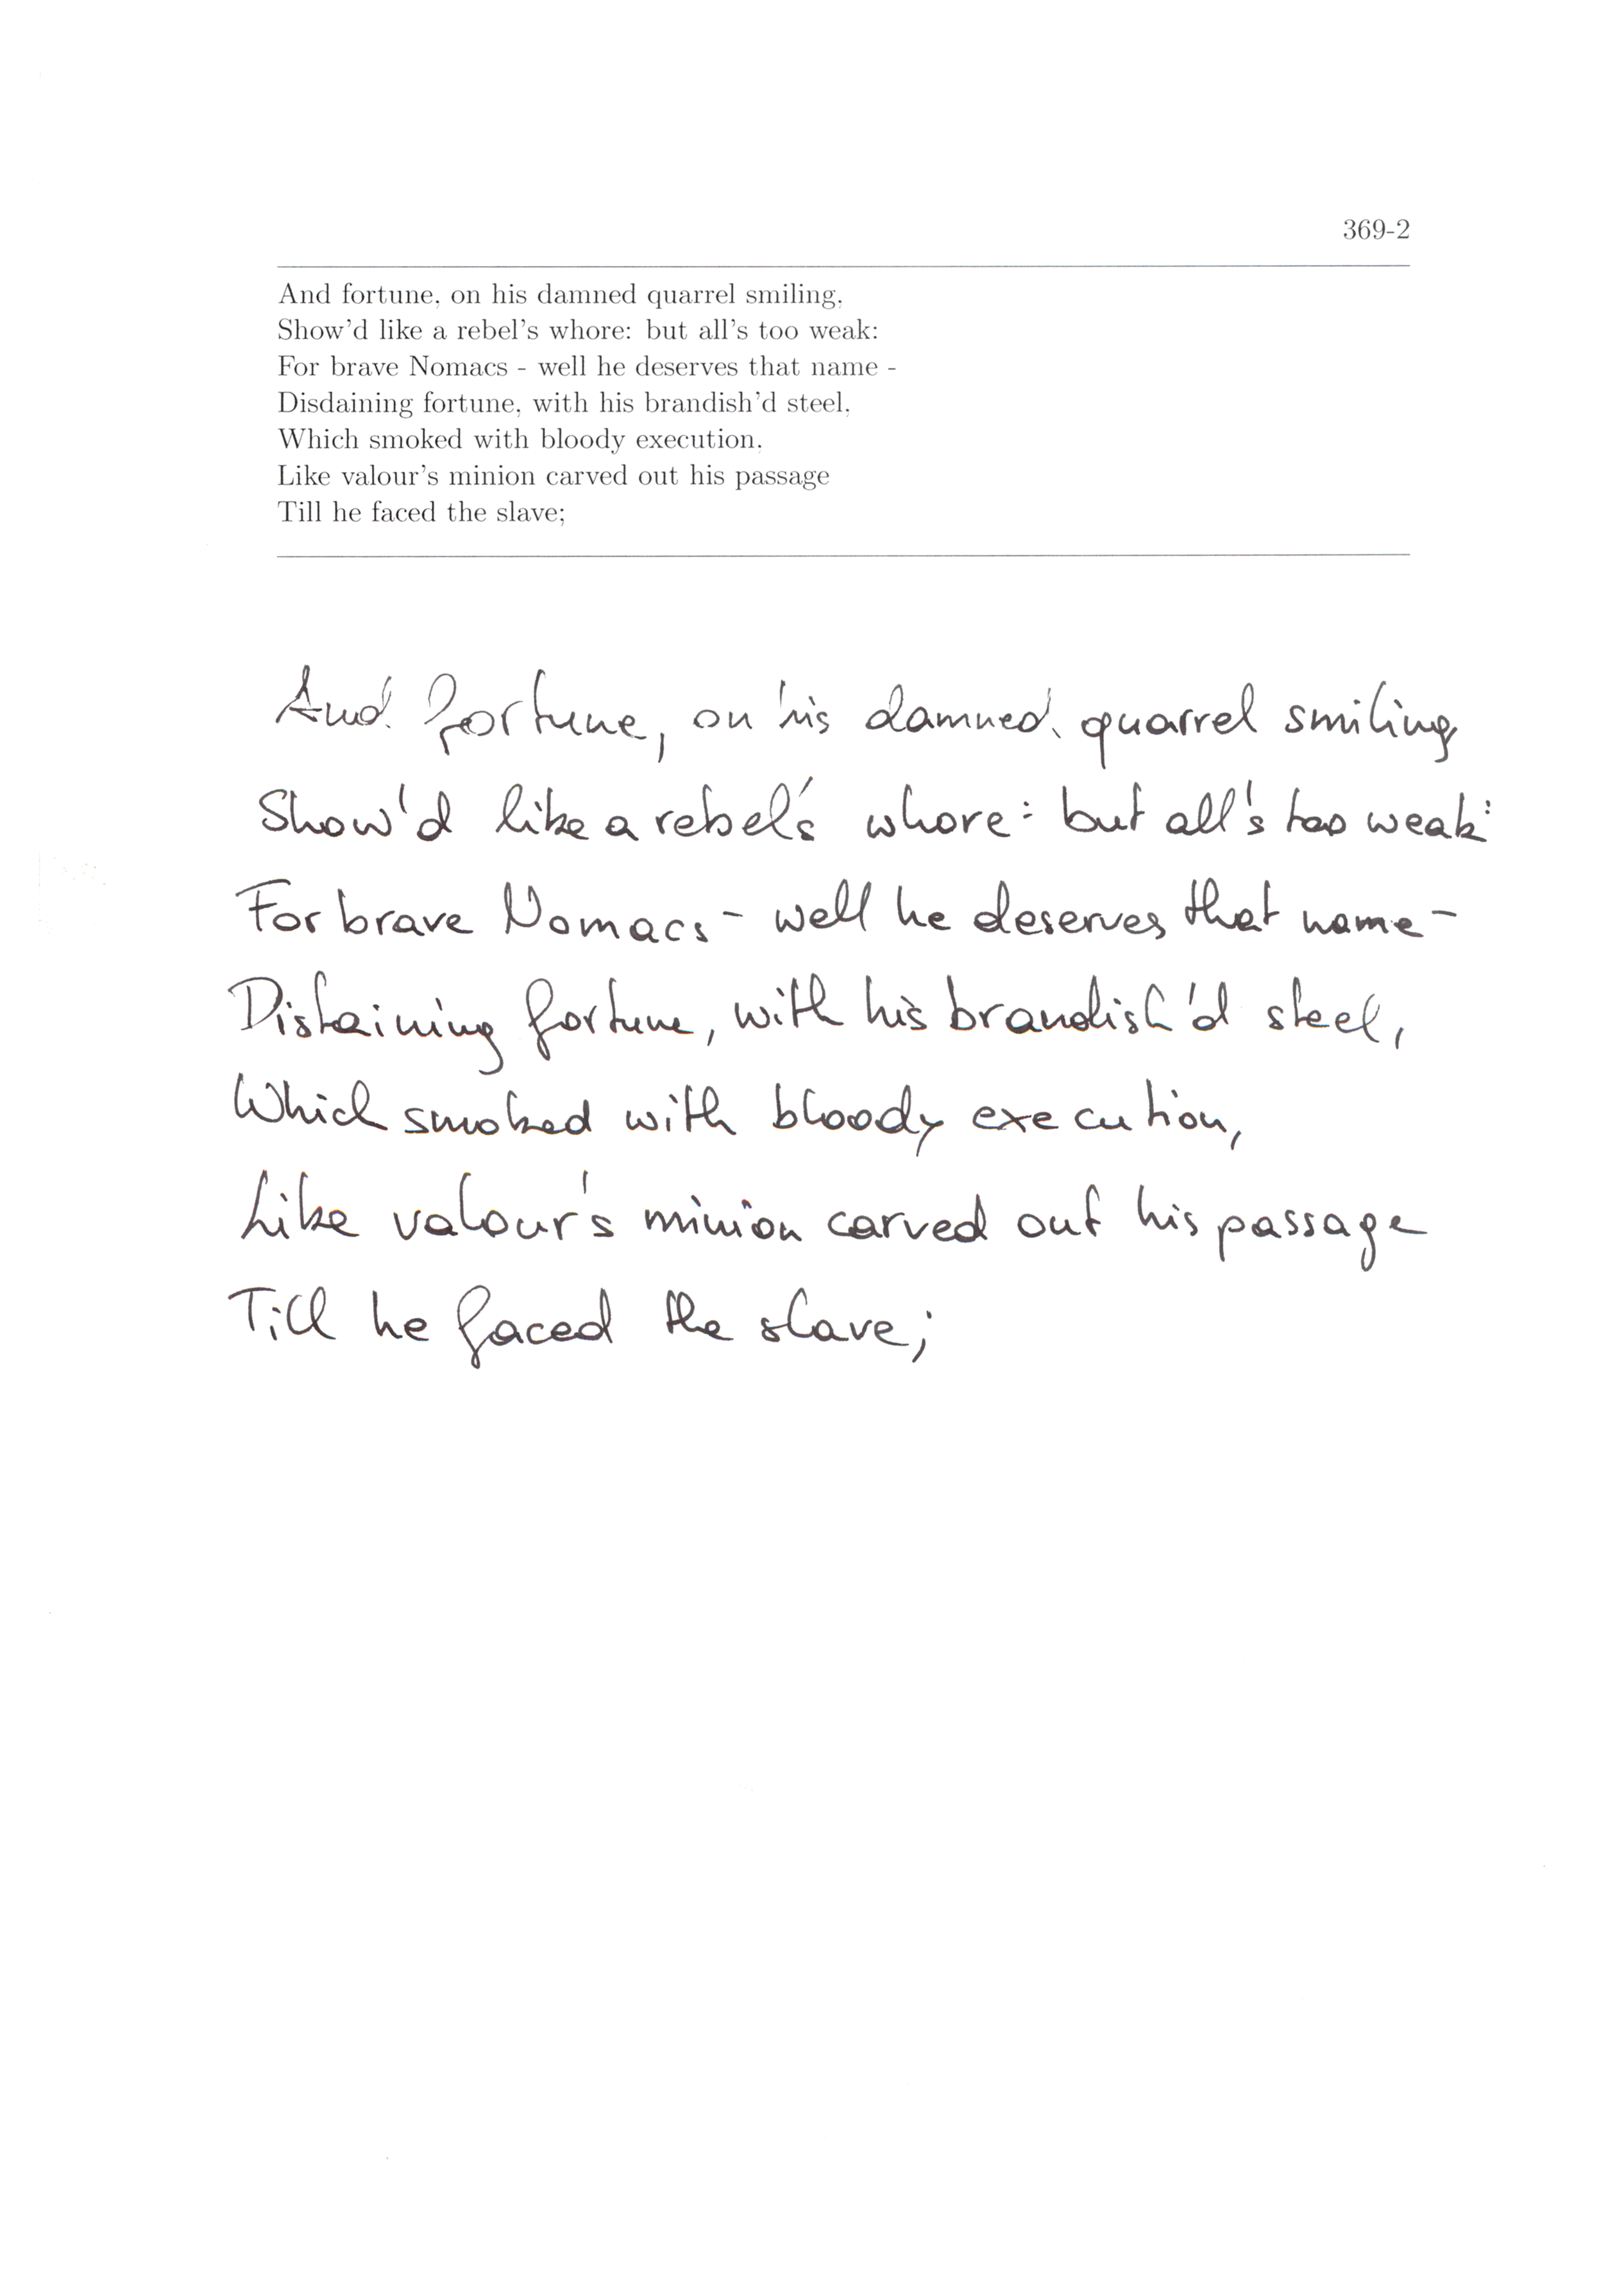 369-2
And fortune, on his damned quarrel smiling,
Show'd like a rebel's whore: but all's too weak:
For brave Nomacs - well he deserves that name -
Disdaining fortune, with his brandish'd steel,
Which smoked with bloody execution,
Like valour's minion carved out his passage
Till he faced the slave;
And fortune, on his damned quarrel smiling,
Show'd like a rebel's whore: but all's too weak:
For brave Nomacs - well he deserves that name -
Distaining fortune, with his brandish'd steel,
Which smoked with bloody execution,
Like valour's minion carved out his passage
Till he faced the slave;